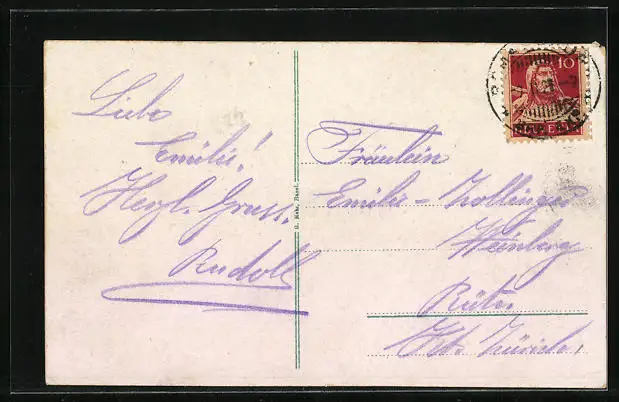 Liebe
Emilie!
Herzl. Gruss.
Rudolf
G. Metz, Basel.
10
HELVETIA
Fräulein
Emilie Zollinger
Weinberg
Rüti
Kt. Zürich.